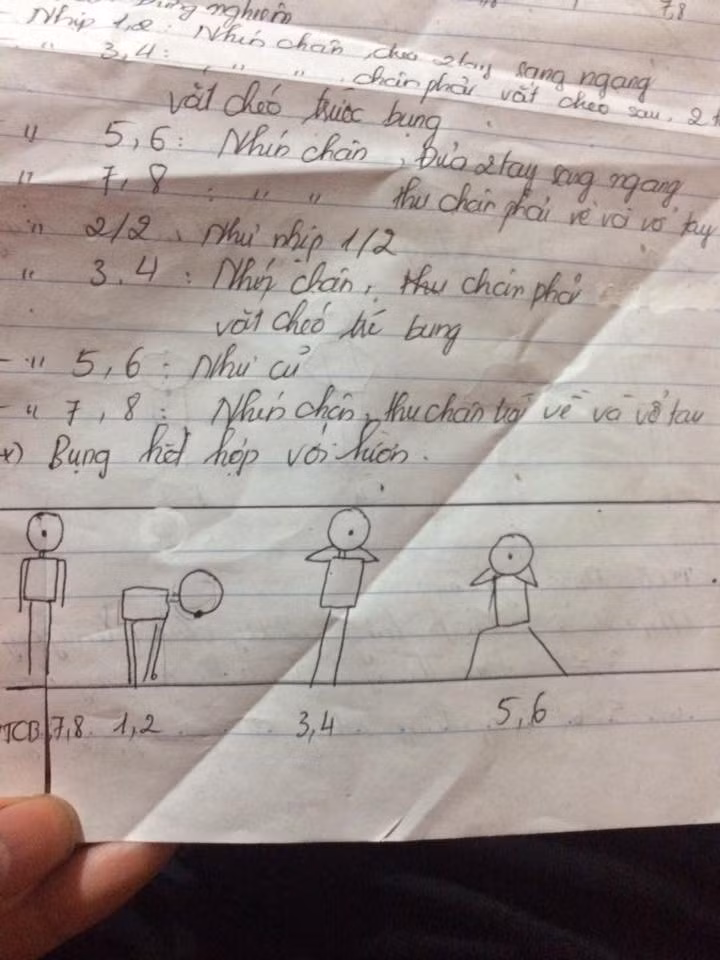 7,8
đứng nghiêm
- Nhịp 1,2 : Nhún chân, đưa 2 tay sang ngang
" 3,4 : " " chân phải vắt chéo sau, 2 t
vắt chéo trước bụng
" 5,6 : Nhún chân, Đưa 2 tay sang ngang
" 7,8 : " " thu chân phải về và vỗ tay
" 2/2 . Như nhịp 1/2
" 3.4 : Nhún chân, chân phải
vắt chéo bụng
- " 5,6 : Như cũ
- " 7,8 : Nhún chân, thu chân về và vỗ tay
*) Bụng kết hợp với lườn.
TCB 7,8 1,2 3,4 5,6